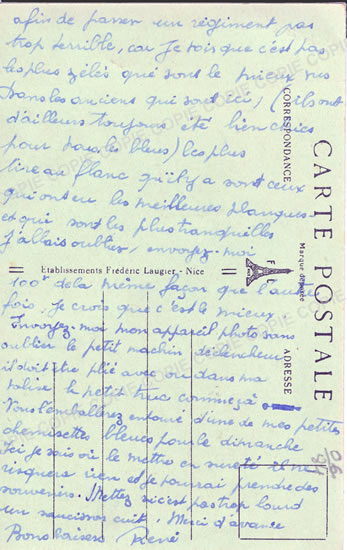 afin de passer un régiment pas
trop terrible, car je vois que c'est pas
les plus zélés qui sont le mieux vus
Dans les anciens qui sont ici, (ils ont
d'ailleurs toujours été bien
pour les bleus) les plus
tire au flanc qu'il y a sont ceux
qui ont eu les meilleures planques
et qui sont les plus tranquilles
J'allais oublier, envoyez-moi
100F de la même façon que l'autre
fois, je crois que c'est le mieux
Envoyez-moi mon appareil photo sans
oublier le petit machin déclencheur
il doit être plié avec ou dans ma
valise le petit truc comme ça
Vous l'emballerez entouré d'une de mes petites
chemisettes bleues pour le dimanche
Ici je sais où le mettre en sureté il ne
risquera rien et je pourrai prendre des
souvenirs. Mettez si c'est pas trop lourd
un saucisson cuit. Merci d'avance
Bons baisers René
CARTE POSTALE
CORRESPONDANCE
Marque déposée
F L
ADRESSE
Etablissements Frédéric Laugier - Nice
COPIE COPIE COPIE COPIE